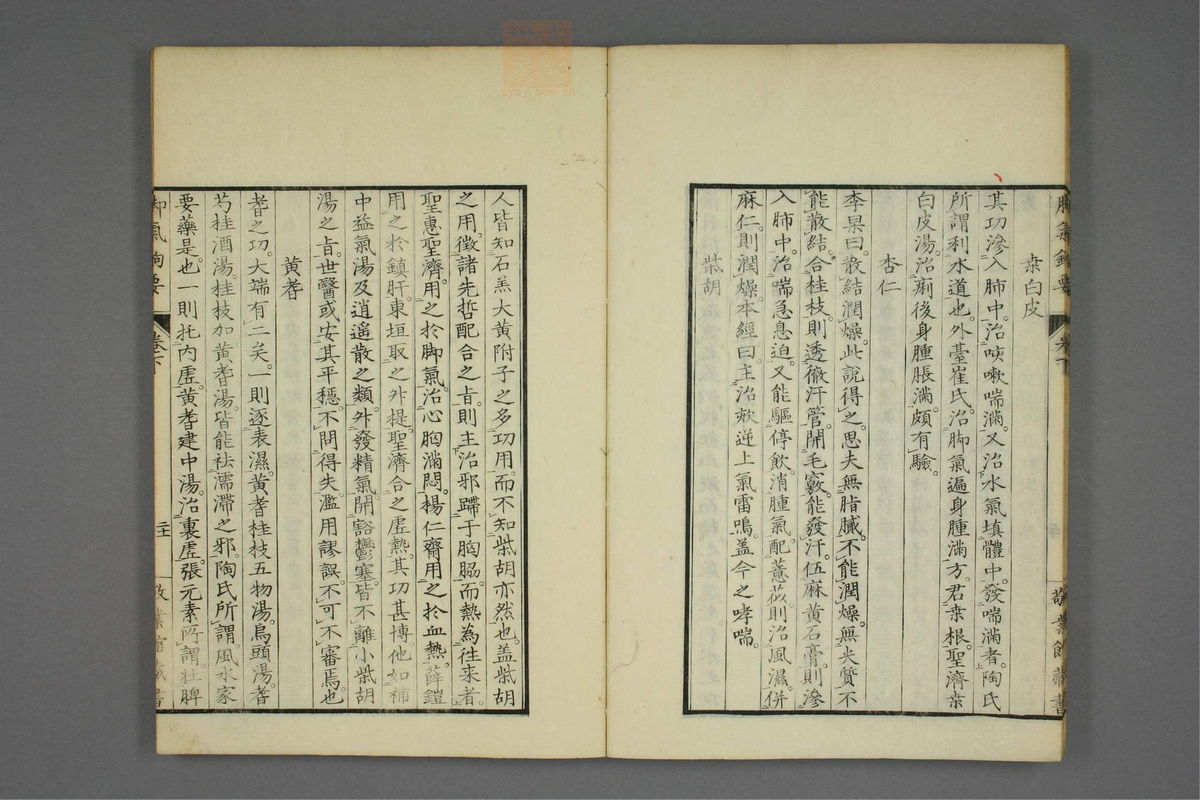 桒白皮
其功滲入肺中。治咳嗽喘滿。又治水氣填體中。發喘滿者。陶氏
所謂利水道也。外臺崔氏。治脚氣遍身腫滿方。君桒根。聖濟桒
白皮湯。治痢後身腫脹滿。頗有驗。
杏仁
李杲曰。散結潤燥。此說得之。思夫無脂膩。不能潤燥。無尖質不
能散結。合桂枝。則透徹汗管。開毛竅。能發汗。伍麻黃石膏。則滲
入肺中。治喘急息迫。又能驅停飲。消腫氣。配薏苡。則治風濕。併
麻仁。則潤燥。本經曰。主治欬逆上氣雷鳴。盖今之哮喘。
柴胡
人皆知石羔大黃附子之多功用。而不知柴胡亦然也。盖柴胡
之用。徵諸先哲配合之旨。則主治邪蹛于胸脇。而熱為徃來者。
聖惠聖濟。用之於脚氣。治心胸滿悶。楊仁齋用之於血熱。薛鎧
用之於鎮肝。東垣取之升提。聖濟合之虛熱。其功甚博。他如補
中益氣湯及逍遙散之類。升發精氣。開豁鬱塞。皆不離小柴胡
湯之旨。世醫或安其平穩。不問得失。濫用謬誤。不可不審焉也
黃耆
耆之功。大端有二矣。一則逐表濕。黃耆桂枝五物湯。烏頭湯。耆
芍桂酒湯。桂枝加黃耆湯。皆能祛濡滯之邪。陶氏所謂。風水家
要藥是也。一則托內虛。黃耆建中湯。治裏虛。張元素所謂。壯脾
卷下